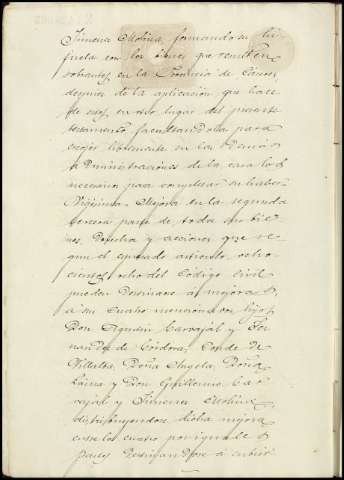 Jimenez Molina, formando su hi-
juela con los bienes que resulten
sobrantes en la Provincia de Cáceres,
despues de la aplicación que hace
de ellos en otro lugar del presente
testamento facultandola para
escojer libremente en las demás
Administraciones de la casa lo
necesario para completar su haber.
Mejora en la segunda
tercera parte de todos sus bie-
nes, derechos y acciones que se-
gun el citado artículo ocho-
cientos ocho del Código civil
pueden destinarse á mejora,
a sus cuatro mencionados hijos
Don Agustin Carvajal y Fer-
nandez de Córdova, Conde de
Villalba, Doña Angela, Doña
Luisa y Don Guillermo Car-
vajal y Jimenez Molina,
distribuyendose dicha mejora
entre los cuatro por iguales
partes destinandose á cubrir